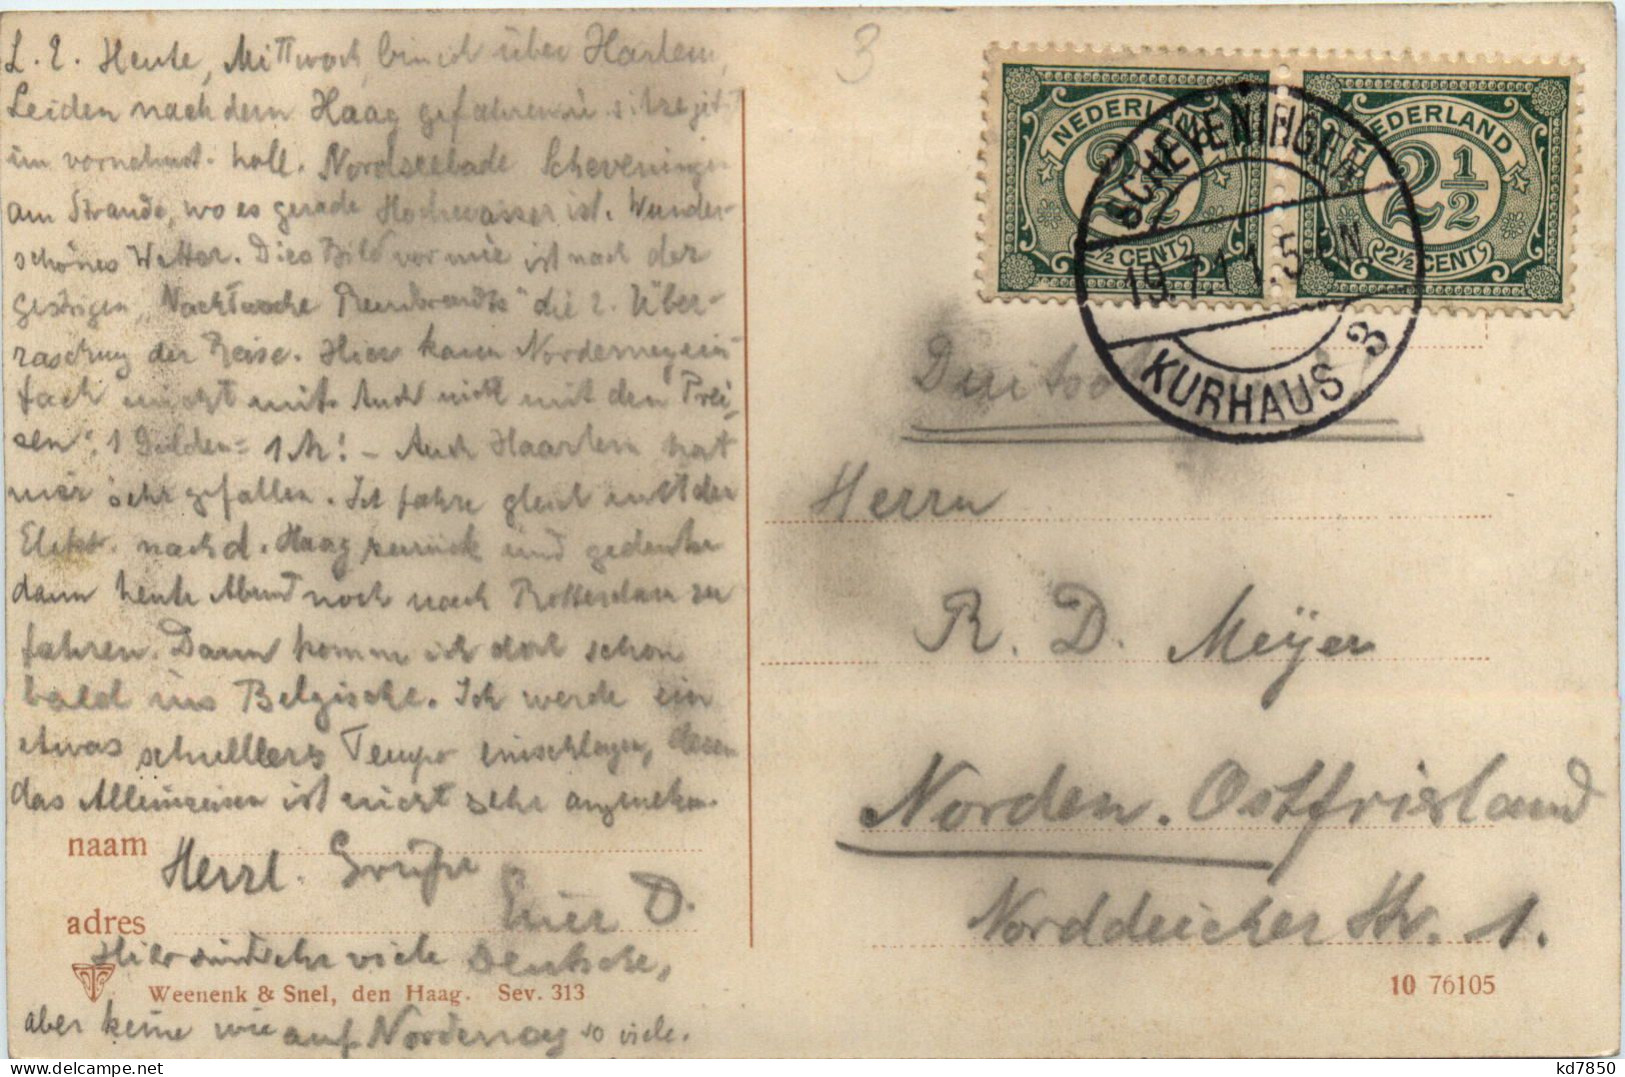 L. E. Heute, Mittwoch, bin ich über Harlem,
Leiden nach dem Haag gefahren u. sitze jetzt
im vornehmst. holl. Nordseebade Scheveningen
am Strande, wo es gerade Hochwasser ist. Wunder-
schönes Wetter. Dies Bild vor mir ist nach der
gestrigen „Nachtwache Rembrandts“ die 2. Über-
raschung der Reise. Hier kann Norderney ein-
fach nicht mit. Auch nicht mit den Prei-
sen: 1 Gulden = 1 M! – Auch Haarlem hat
mir sehr gefallen. Ich fahre gleich mit der
Elekt. nach d. Haag zurück und gedenke
dann heute Abend noch nach Rotterdam zu
fahren. Dann komme ich doch schon
bald ins Belgische. Ich werde ein
etwas schnelleres Tempo einschlagen, denn
das Alleinreisen ist nicht sehr angenehm.
naam Herzl. Grüße
adres Euer D.
Hier sind sehr viele Deutsche,
Weenenk & Snel, den Haag. Sev. 313
aber keine wie auf Norderney so viele.
3
NEDERLAND
2½
2½ CENT
NEDERLAND
2½
2½ CENT
SCHEVENINGEN
19.7.11. 5 N
KURHAUS 3
Duitschl
Herrn
R. D. Meÿer
Norden. Ostfriesland
Norddeicher Str. 1.
10 76105
kd7850